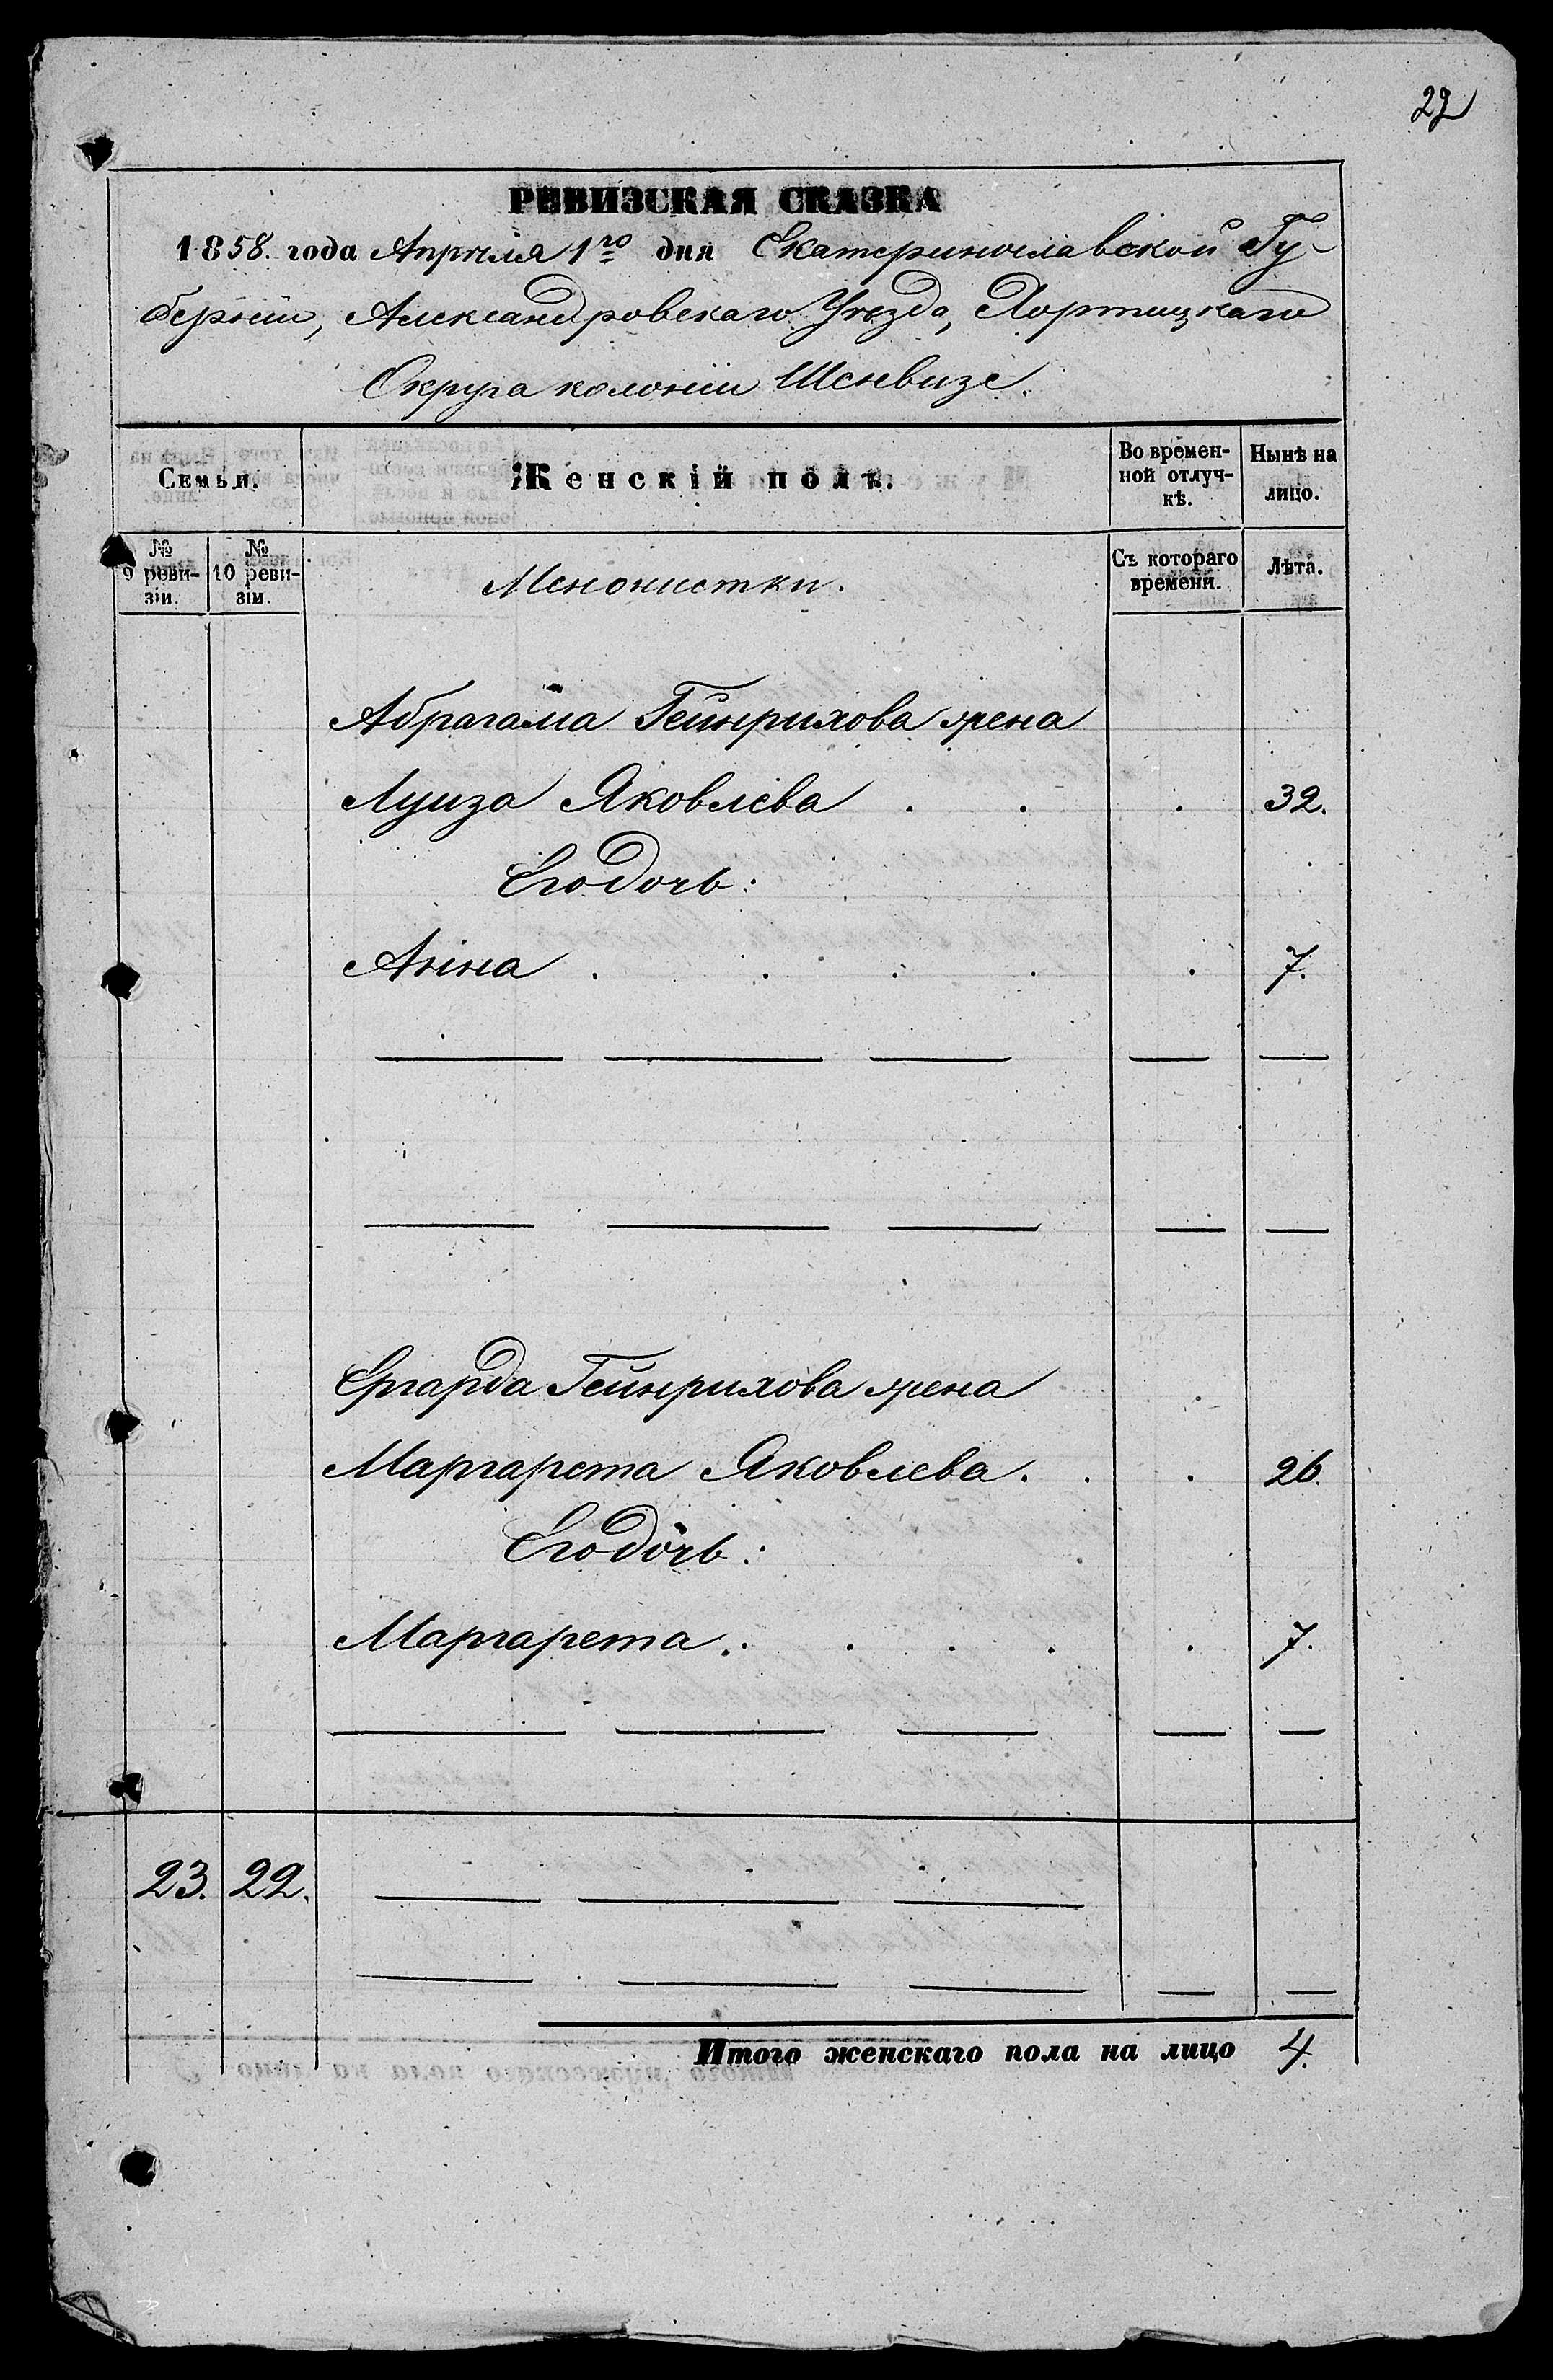 22
РЕВИЗСКАЯ СКАЗКА
1858. года Апрѣля 1го дня Екатеринославской Гу-
берніи, Александровскаго Уѣзда, Хортицкаго
Округа колоніи Шенвизе.
Семьи.
Женскій полъ.
Во времен-
ной отлуч-
кѣ.
Нынѣ на
лицо.
№
9 реви-
зіи.
№
10 реви-
зіи.
Менонистки.
Съ котораго
времени.
Лѣта.
Абрагама Гейнрихова жена
Луиза Яковлева . . . 32.
Его дочь:
Анна . . . . . 7.
Ергарда Гейнрихова жена
Маргарета Яковлева. . . 26.
Его дочь:
Маргарета. . . . . . 7.
23. 22.
Итого женскаго пола на лицо 4.